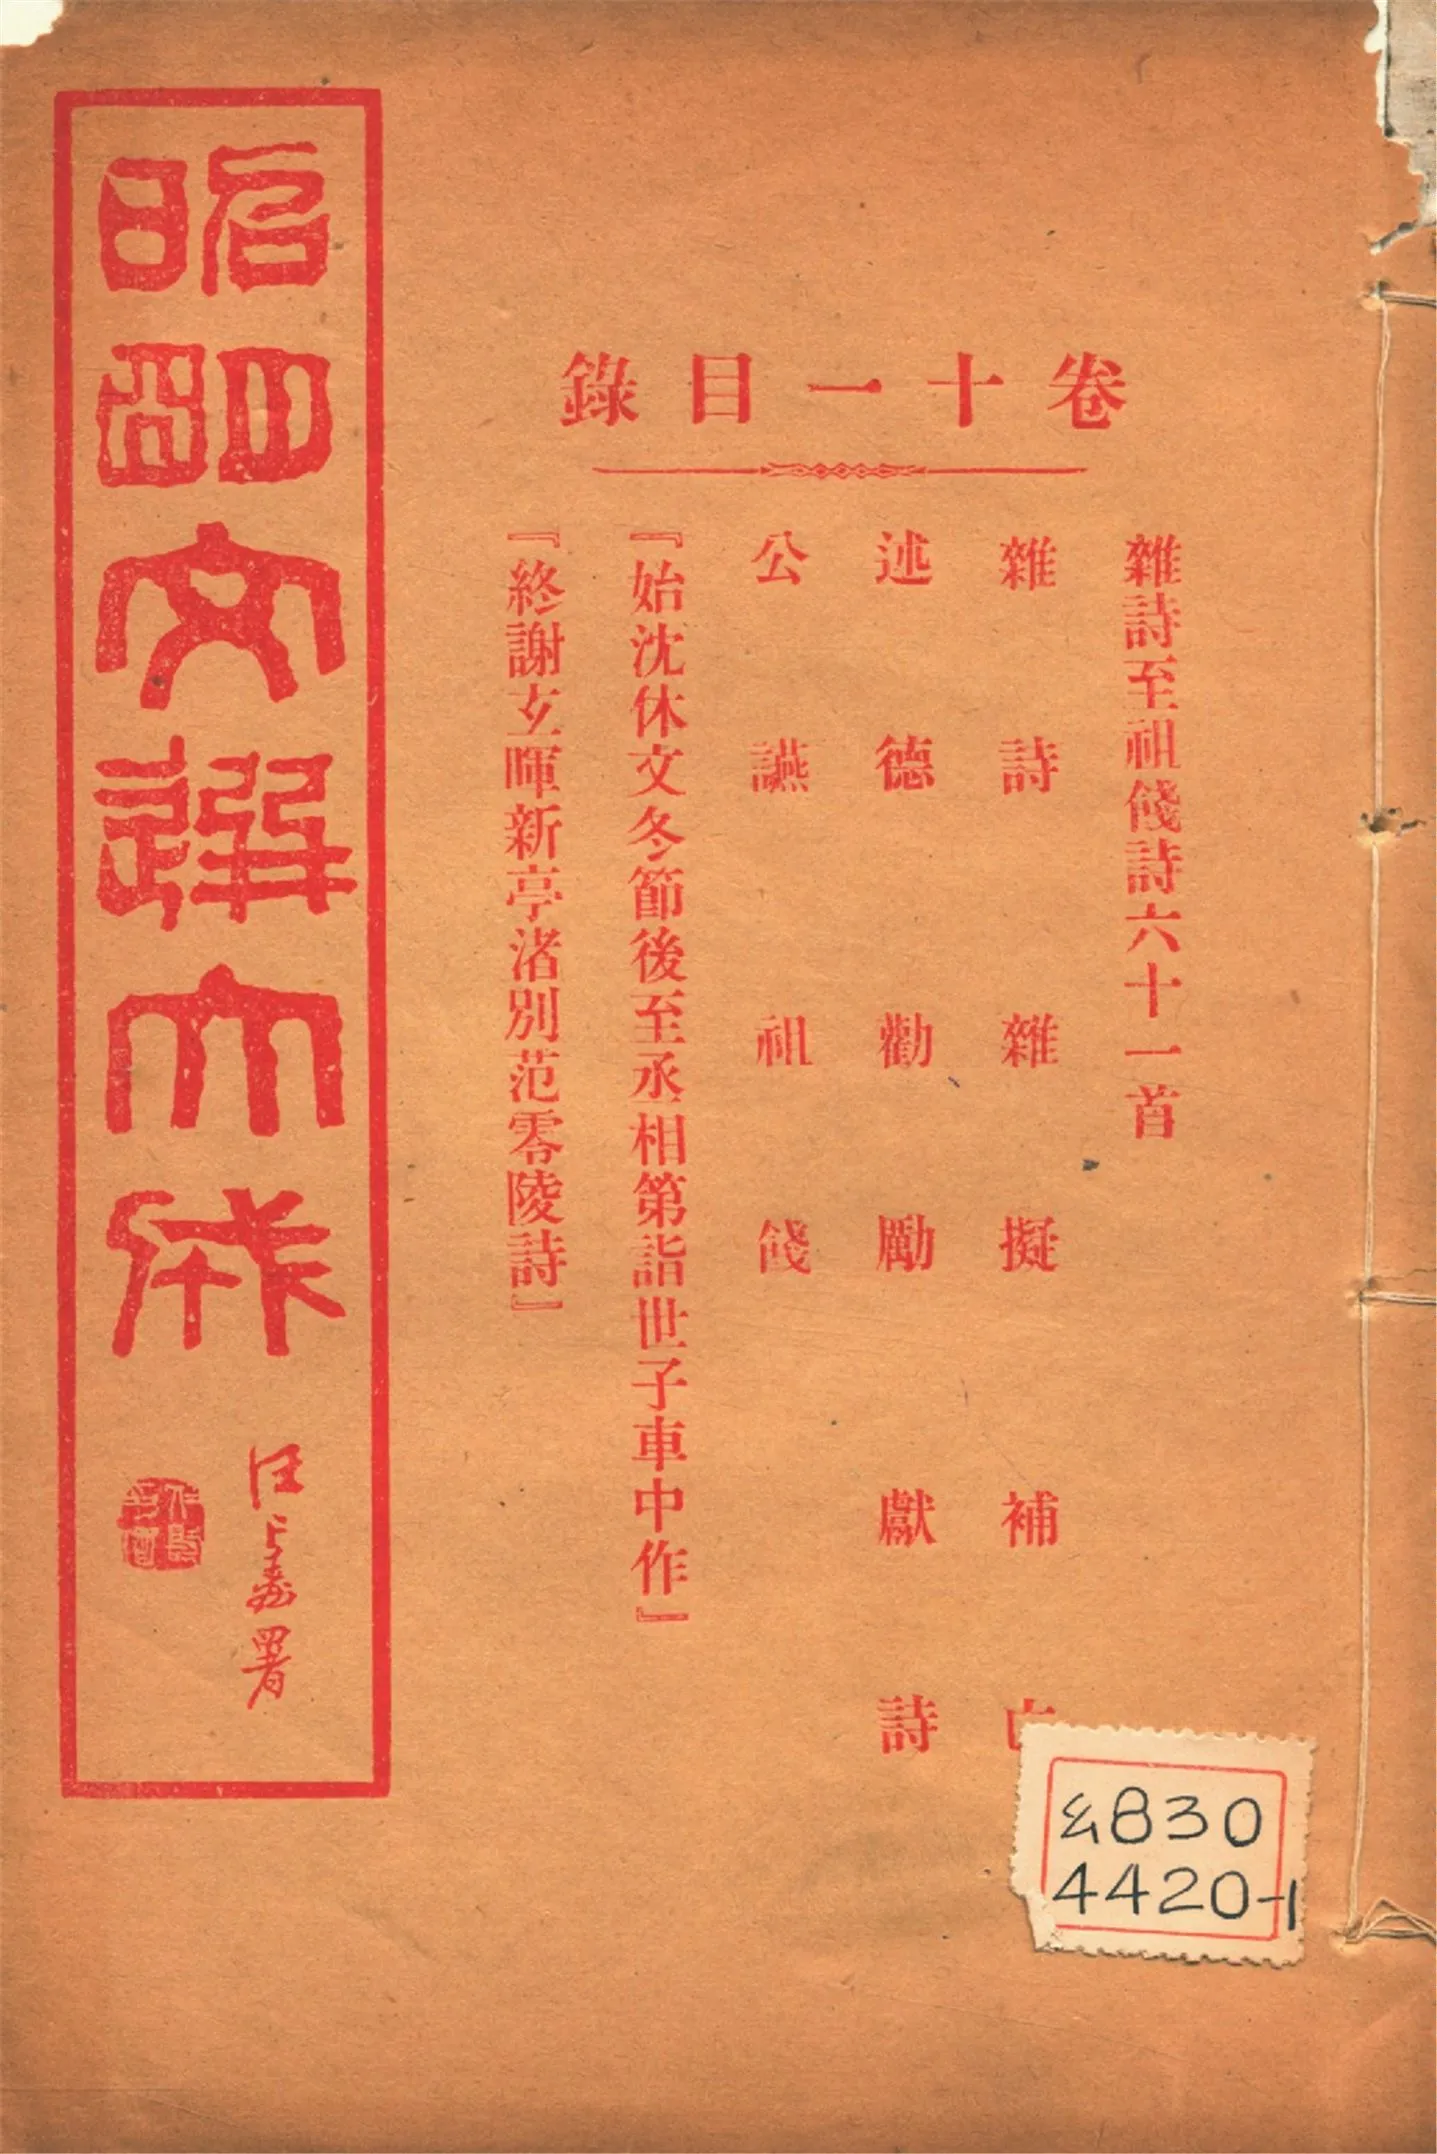 卷十一目錄
雜詩至祖餞詩六十一首
雜詩 雜擬 補
述德 勸勵 獻詩
公讌 祖餞
『始沈休文冬節後至丞相第詣世子車中作』
『終謝玄暉新亭渚別范零陵詩』
昭明文選大成
汪 署
830
4420-1